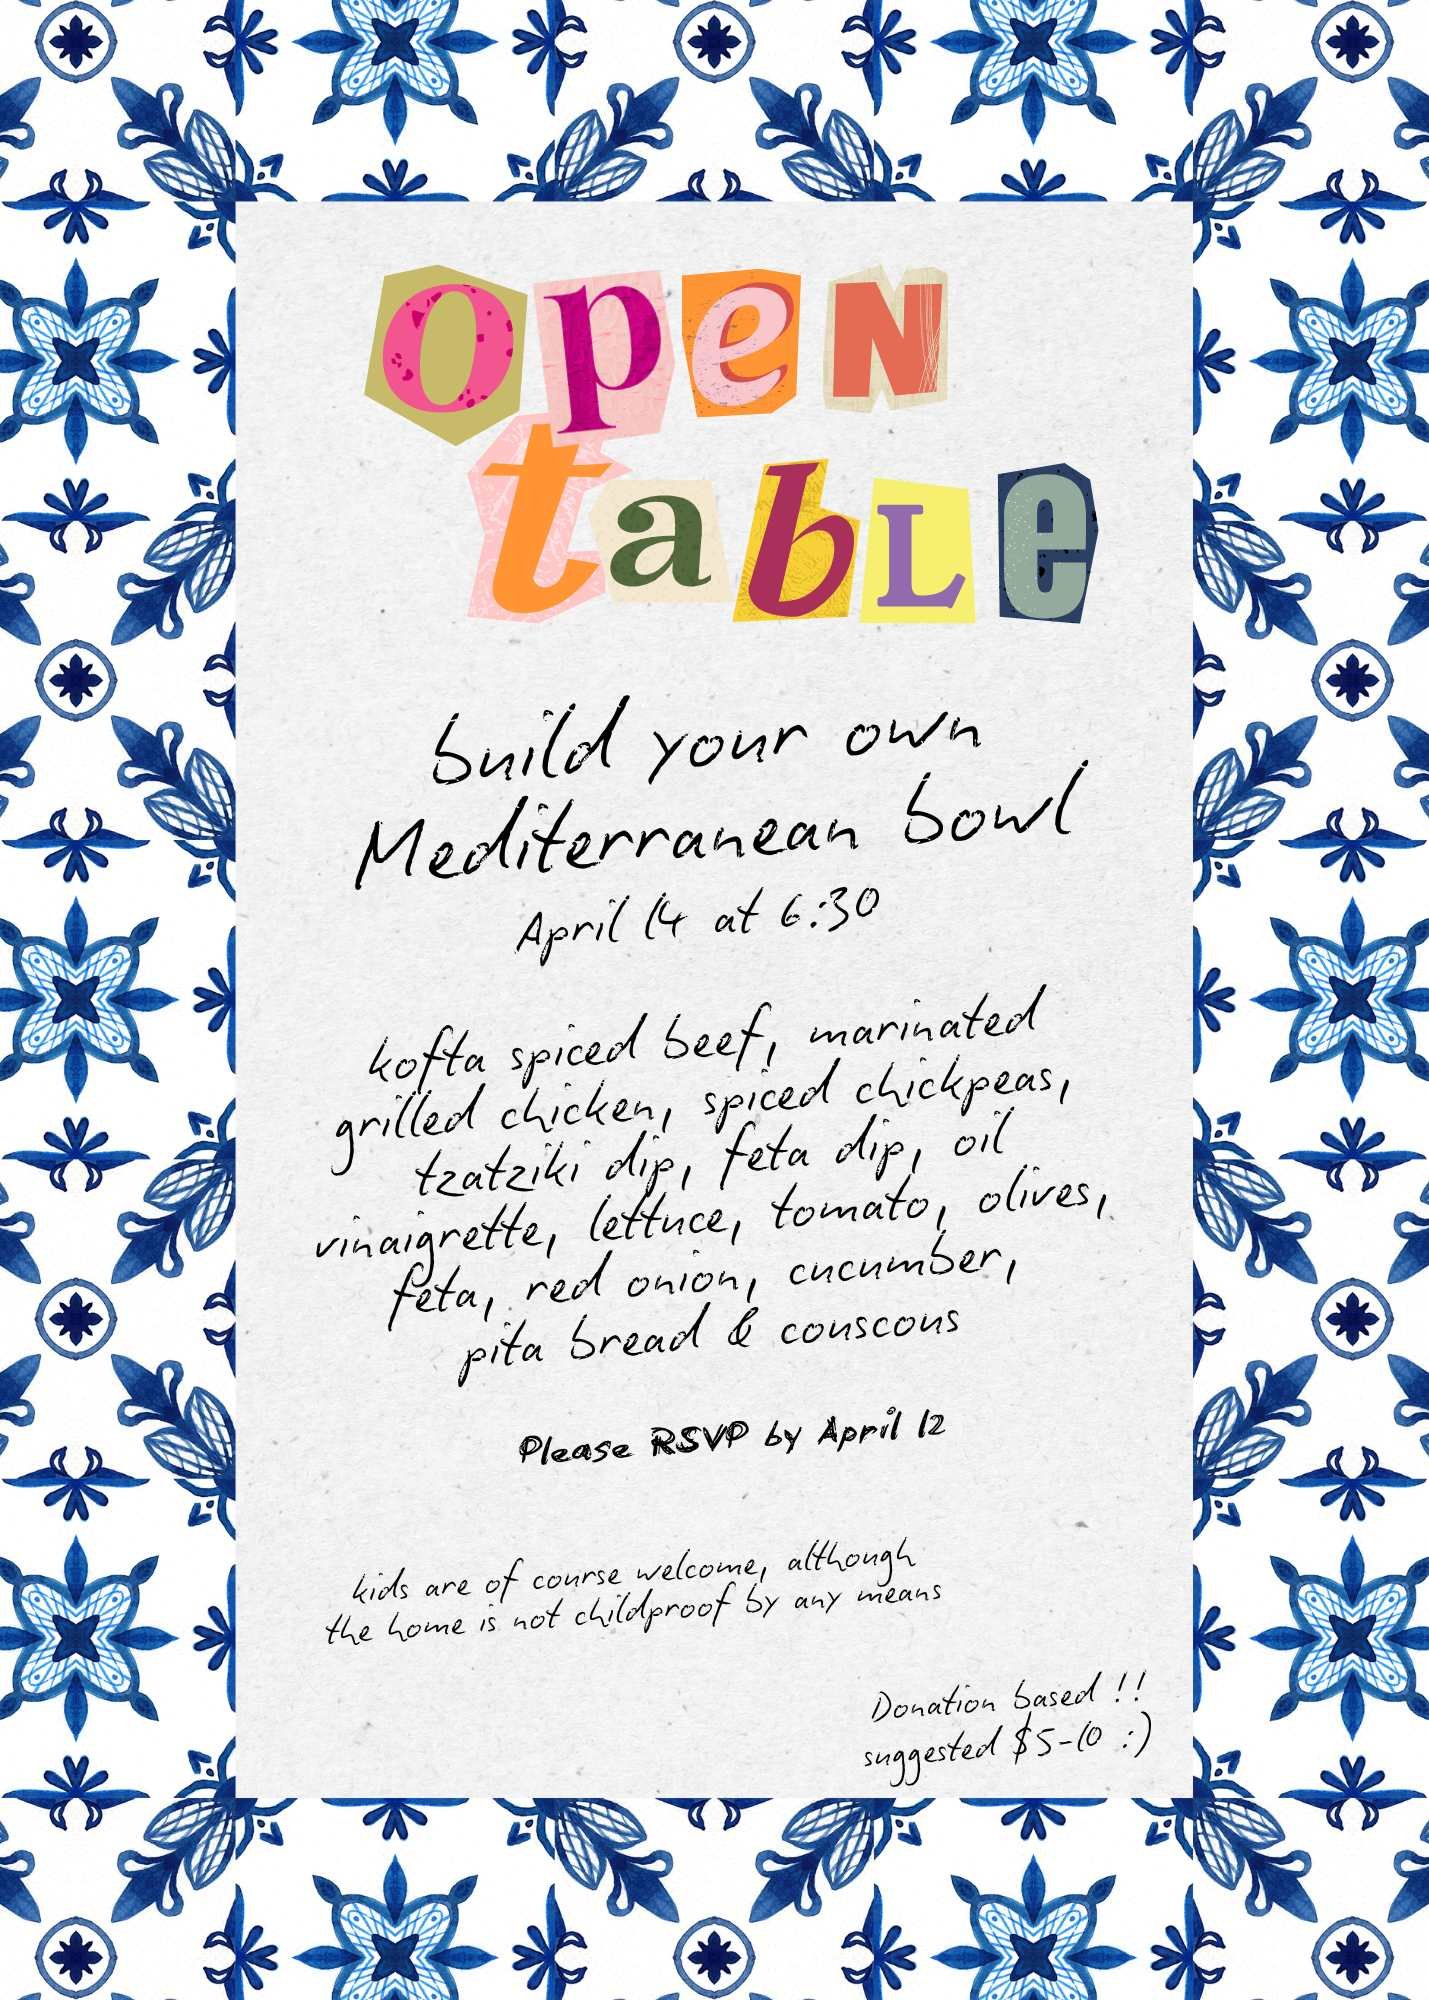 open
table
build your own
Mediterranean bowl
April 14 at 6:30
kofta spiced beef, marinated
grilled chicken, spiced chickpeas,
tzatziki dip, feta dip, oil
vinaigrette, lettuce, tomato, olives,
feta, red onion, cucumber,
pita bread & couscous
Please RSVP by April 12
kids are of course welcome, although
the home is not childproof by any means
Donation based !!
suggested $5-10 :)